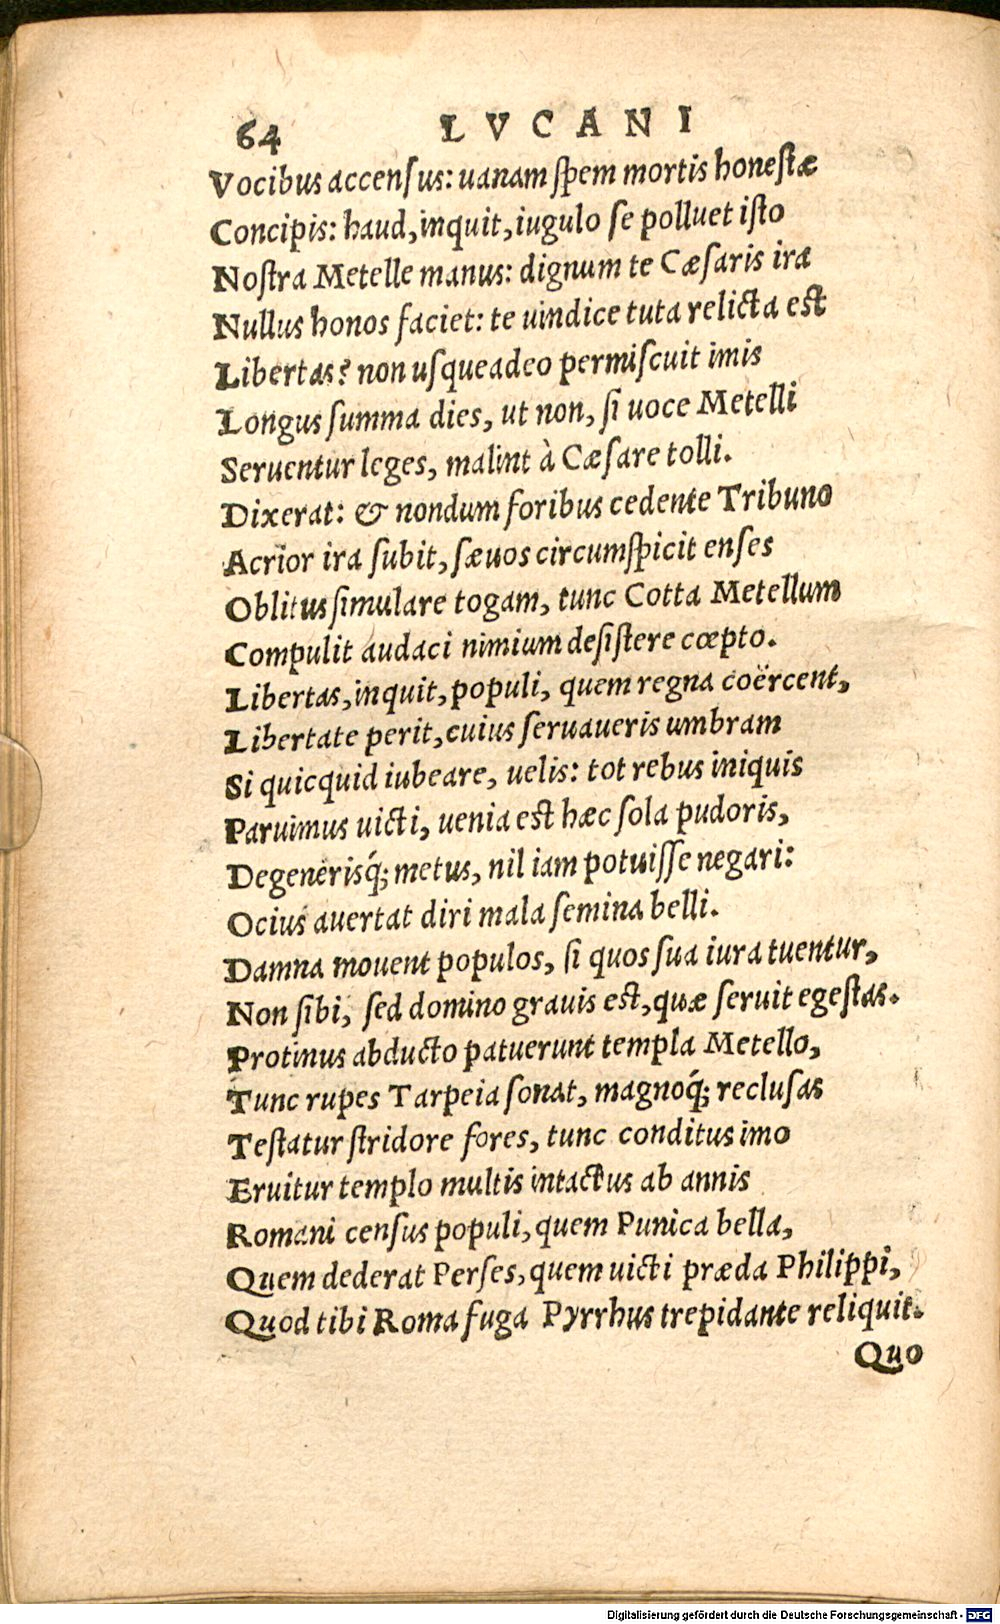 64 LVCANI
Vocibus accensus: uanam ſpem mortis honeſtæ
Concipis: haud, inquit, iugulo ſe polluet iſto
Noſtra Metelle manus: dignum te Cæſaris ira
Nullus honos faciet: te uindice tuta relicta eſt
Libertas? non uſqueadeo permiſcuit imis
Longus ſumma dies, ut non, ſi uoce Metelli
Seruentur leges, malint à Cæſare tolli.
Dixerat: & nondum foribus cedente Tribuno
Acrior ira ſubit, ſæuos circumſpicit enſes
Oblitus ſimulare togam, tunc Cotta Metellum
Compulit audaci nimium deſiſtere cœpto.
Libertas, inquit, populi, quem regna coërcent,
Libertate perit, cuius ſeruaueris umbram
Si quicquid iubeare, uelis: tot rebus iniquis
Paruimus uicti, uenia eſt hæc ſola pudoris,
Degenerisq́; metus, nil iam potuiſſe negari:
Ocius auertat diri mala ſemina belli.
Damna mouent populos, ſi quos ſua iura tuentur,
Non ſibi, ſed domino grauis eſt, quæ ſeruit egeſtas.
Protinus abducto patuerunt templa Metello,
Tunc rupes Tarpeia ſonat, magnoq́; recluſas
Teſtatur ſtridore fores, tunc conditus imo
Eruitur templo multis intactus ab annis
Romani cenſus populi, quem Punica bella,
Quem dederat Perſes, quem uicti præda Philippi,
Quod tibi Roma fuga Pyrrhus trepidante reliquit.
Quo
Digitalisierung gefördert durch die Deutsche Forschungsgemeinschaft - DFG